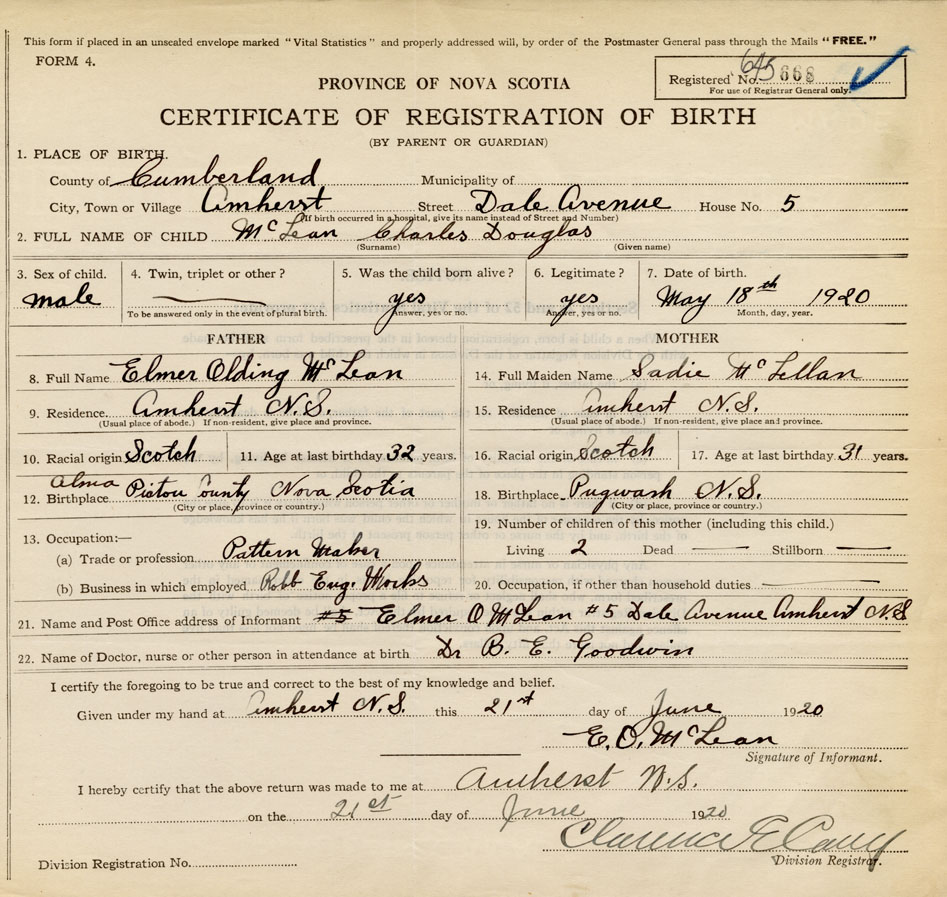 This form if placed in an unsealed envelope marked "Vital Statistics" and properly addressed will, by order of the Postmaster General pass through the Mails "FREE."
FORM 4.
645
PROVINCE OF NOVA SCOTIA
Registered No. 668
For use of Registrar General only.
CERTIFICATE OF REGISTRATION OF BIRTH
(BY PARENT OR GUARDIAN)
1. PLACE OF BIRTH.
County of Cumberland Municipality of
City, Town or Village Amherst Street Dale Avenue House No. 5
(If birth occurred in a hospital, give its name instead of Street and Number)
2. FULL NAME OF CHILD McLean Charles Douglas
(Surname) (Given name)
3. Sex of child. 4. Twin, triplet or other? 5. Was the child born alive? 6. Legitimate? 7. Date of birth.
male yes yes May 18th 1920
To be answered only in the event of plural birth. Answer, yes or no. Answer, yes or no. Month, day, year.
FATHER MOTHER
8. Full Name Elmer Olding McLean 14. Full Maiden Name Sadie McLellan
9. Residence. Amherst N.S. 15. Residence Amherst N.S.
(Usual place of abode.) If non-resident, give place and province. (Usual place of abode.) If non-resident, give place and province.
10. Racial origin Scotch 11. Age at last birthday 32 years. 16. Racial origin Scotch 17. Age at last birthday 31 years.
Alma
12. Birthplace Pictou County Nova Scotia 18. Birthplace Pugwash N.S.
(City or place, province or country.) (City or place, province or country.)
19. Number of children of this mother (including this child.)
13. Occupation:—
(a) Trade or profession Pattern Maker Living 2 Dead — Stillborn —
(b) Business in which employed Robb Eng. Works 20. Occupation, if other than household duties —
21. Name and Post Office address of Informant #5 Elmer O McLean #5 Dale Avenue Amherst N.S
22. Name of Doctor, nurse or other person in attendance at birth Dr B. E. Goodwin
I certify the foregoing to be true and correct to the best of my knowledge and belief.
Given under my hand at Amherst N.S. this 21st day of June 1920
E. O. McLean
Signature of Informant.
I hereby certify that the above return was made to me at Amherst N.S.
on the 21st day of June 1920
Clarence E Casey
Division Registration No. Division Registrar.